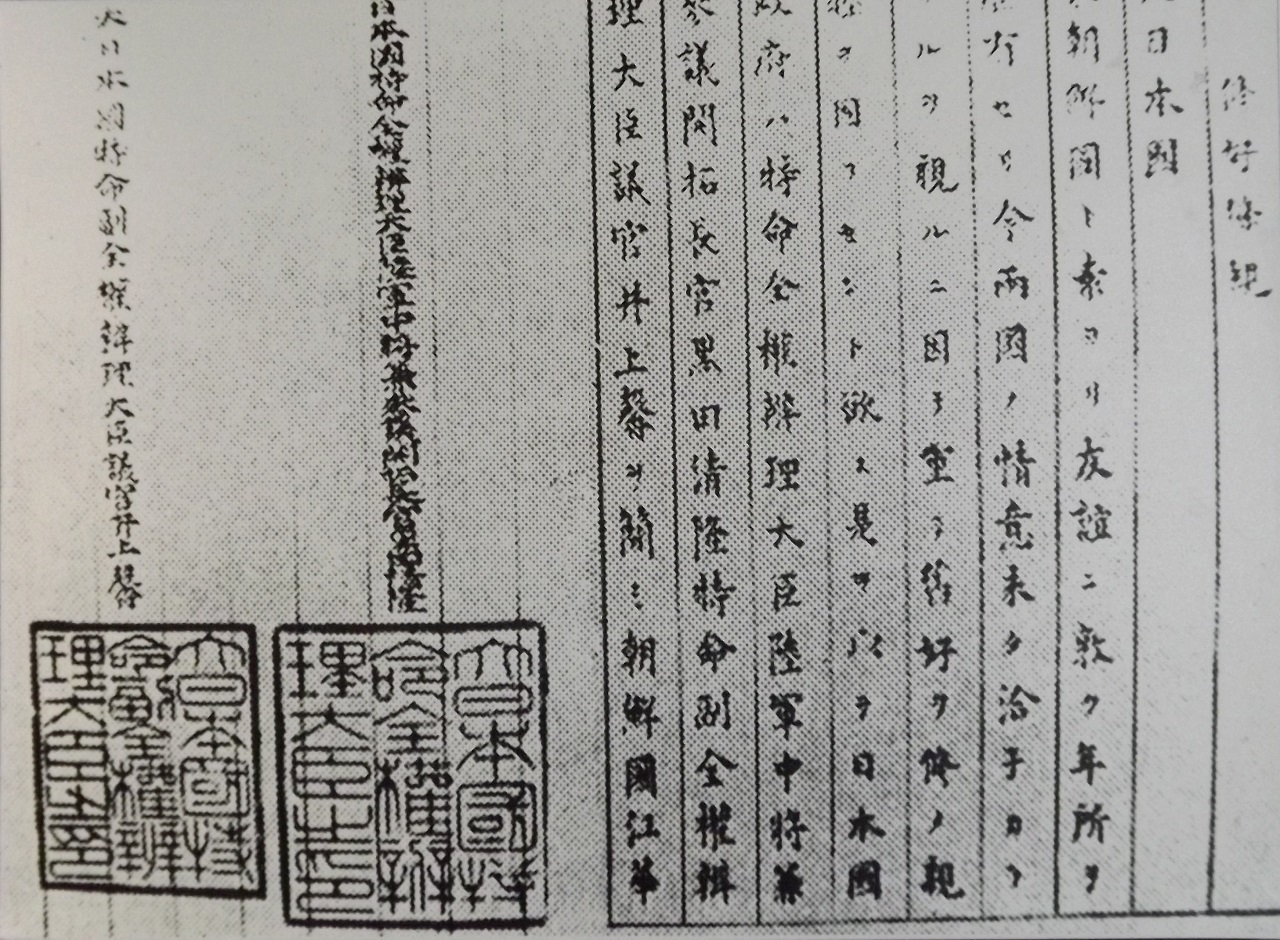 修好條規
日本國
朝鮮國ト素ヨリ友誼ニ敦ク年所ヲ
有セリ今兩國ノ情意未タ洽子カラ
ルヲ視ルニ因テ重テ舊好ヲ修メ親
ヲ固フセント欲ス是ヲ以テ日本國
政府ハ特命全權辨理大臣陸軍中將兼
參議開拓長官黒田清隆特命副全權辨
理大臣議官井上馨ヲ簡ミ朝鮮國江華
日本國特命全權辨理大臣陸軍中將兼參議開拓長官黒田清隆
大日本國特命副全權辨理大臣議官井上馨
大日本國特
命全權辨
理大臣之印
大日本國特
命副全權辨
理大臣之印